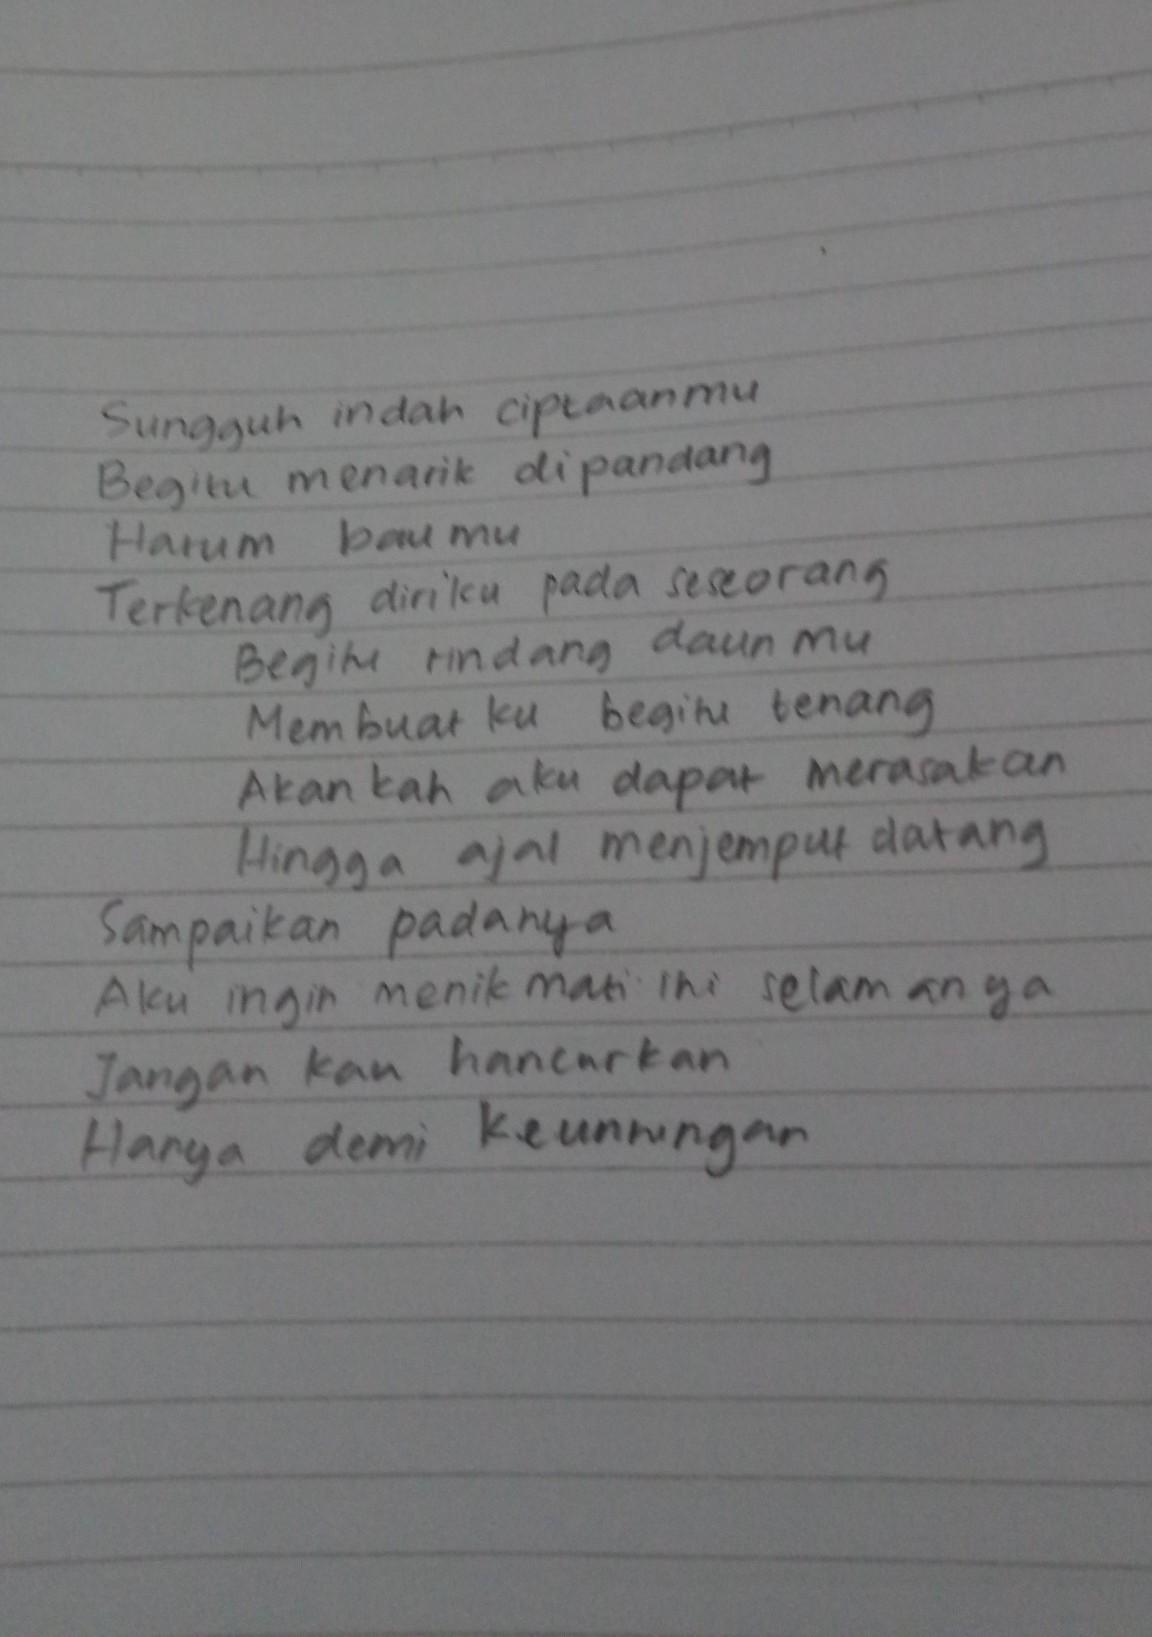 Sungguh indah ciptaanmu
Begitu menarik dipandang
Harum baumu
Terkenang diriku pada seseorang
Begitu rindang daunmu
Membuatku begitu tenang
Akankah aku dapat merasakan
Hingga ajal menjemput datang
Sampaikan padanya
Aku ingin menikmati ini selamanya
Jangan kau hancurkan
Hanya demi keuntungan